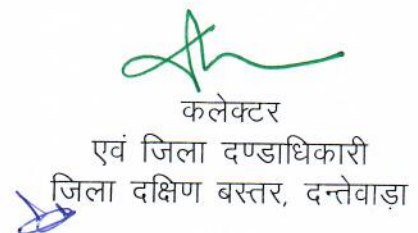 कलेक्टर
एवं जिला दण्डाधिकारी
जिला दक्षिण बस्तर, दन्तेवाड़ा